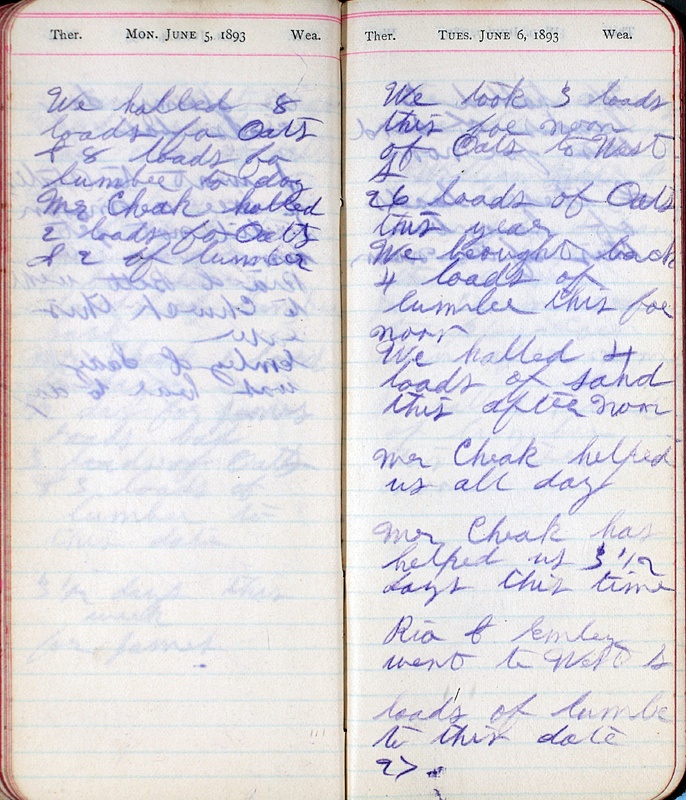 Ther. MON. JUNE 5, 1893 Wea.
We halled 8
loads fo Oats
& 8 loads fo
lumbee to day
Mr Cheak halled
2 loads fo Oats
& 2 of lumber
day for James
loads had
3 loads of Oats
& 3 loads of
lumber to
this date
3 1/2 days this
week
for James
Ther. TUES. JUNE 6, 1893 Wea.
We took 3 loads
this foe noon
of Oats to West
S
26 loads of Oats
this year
We beought back
4 loads of
lumbee this foe
noon
We halled 4
loads of sand
this aftee noon
mr Cheak helped
us all day
mr Cheak has
helped us 3 1/2
days this time
Ria & Emley
went to West S
loads of lumbe
to this date
27